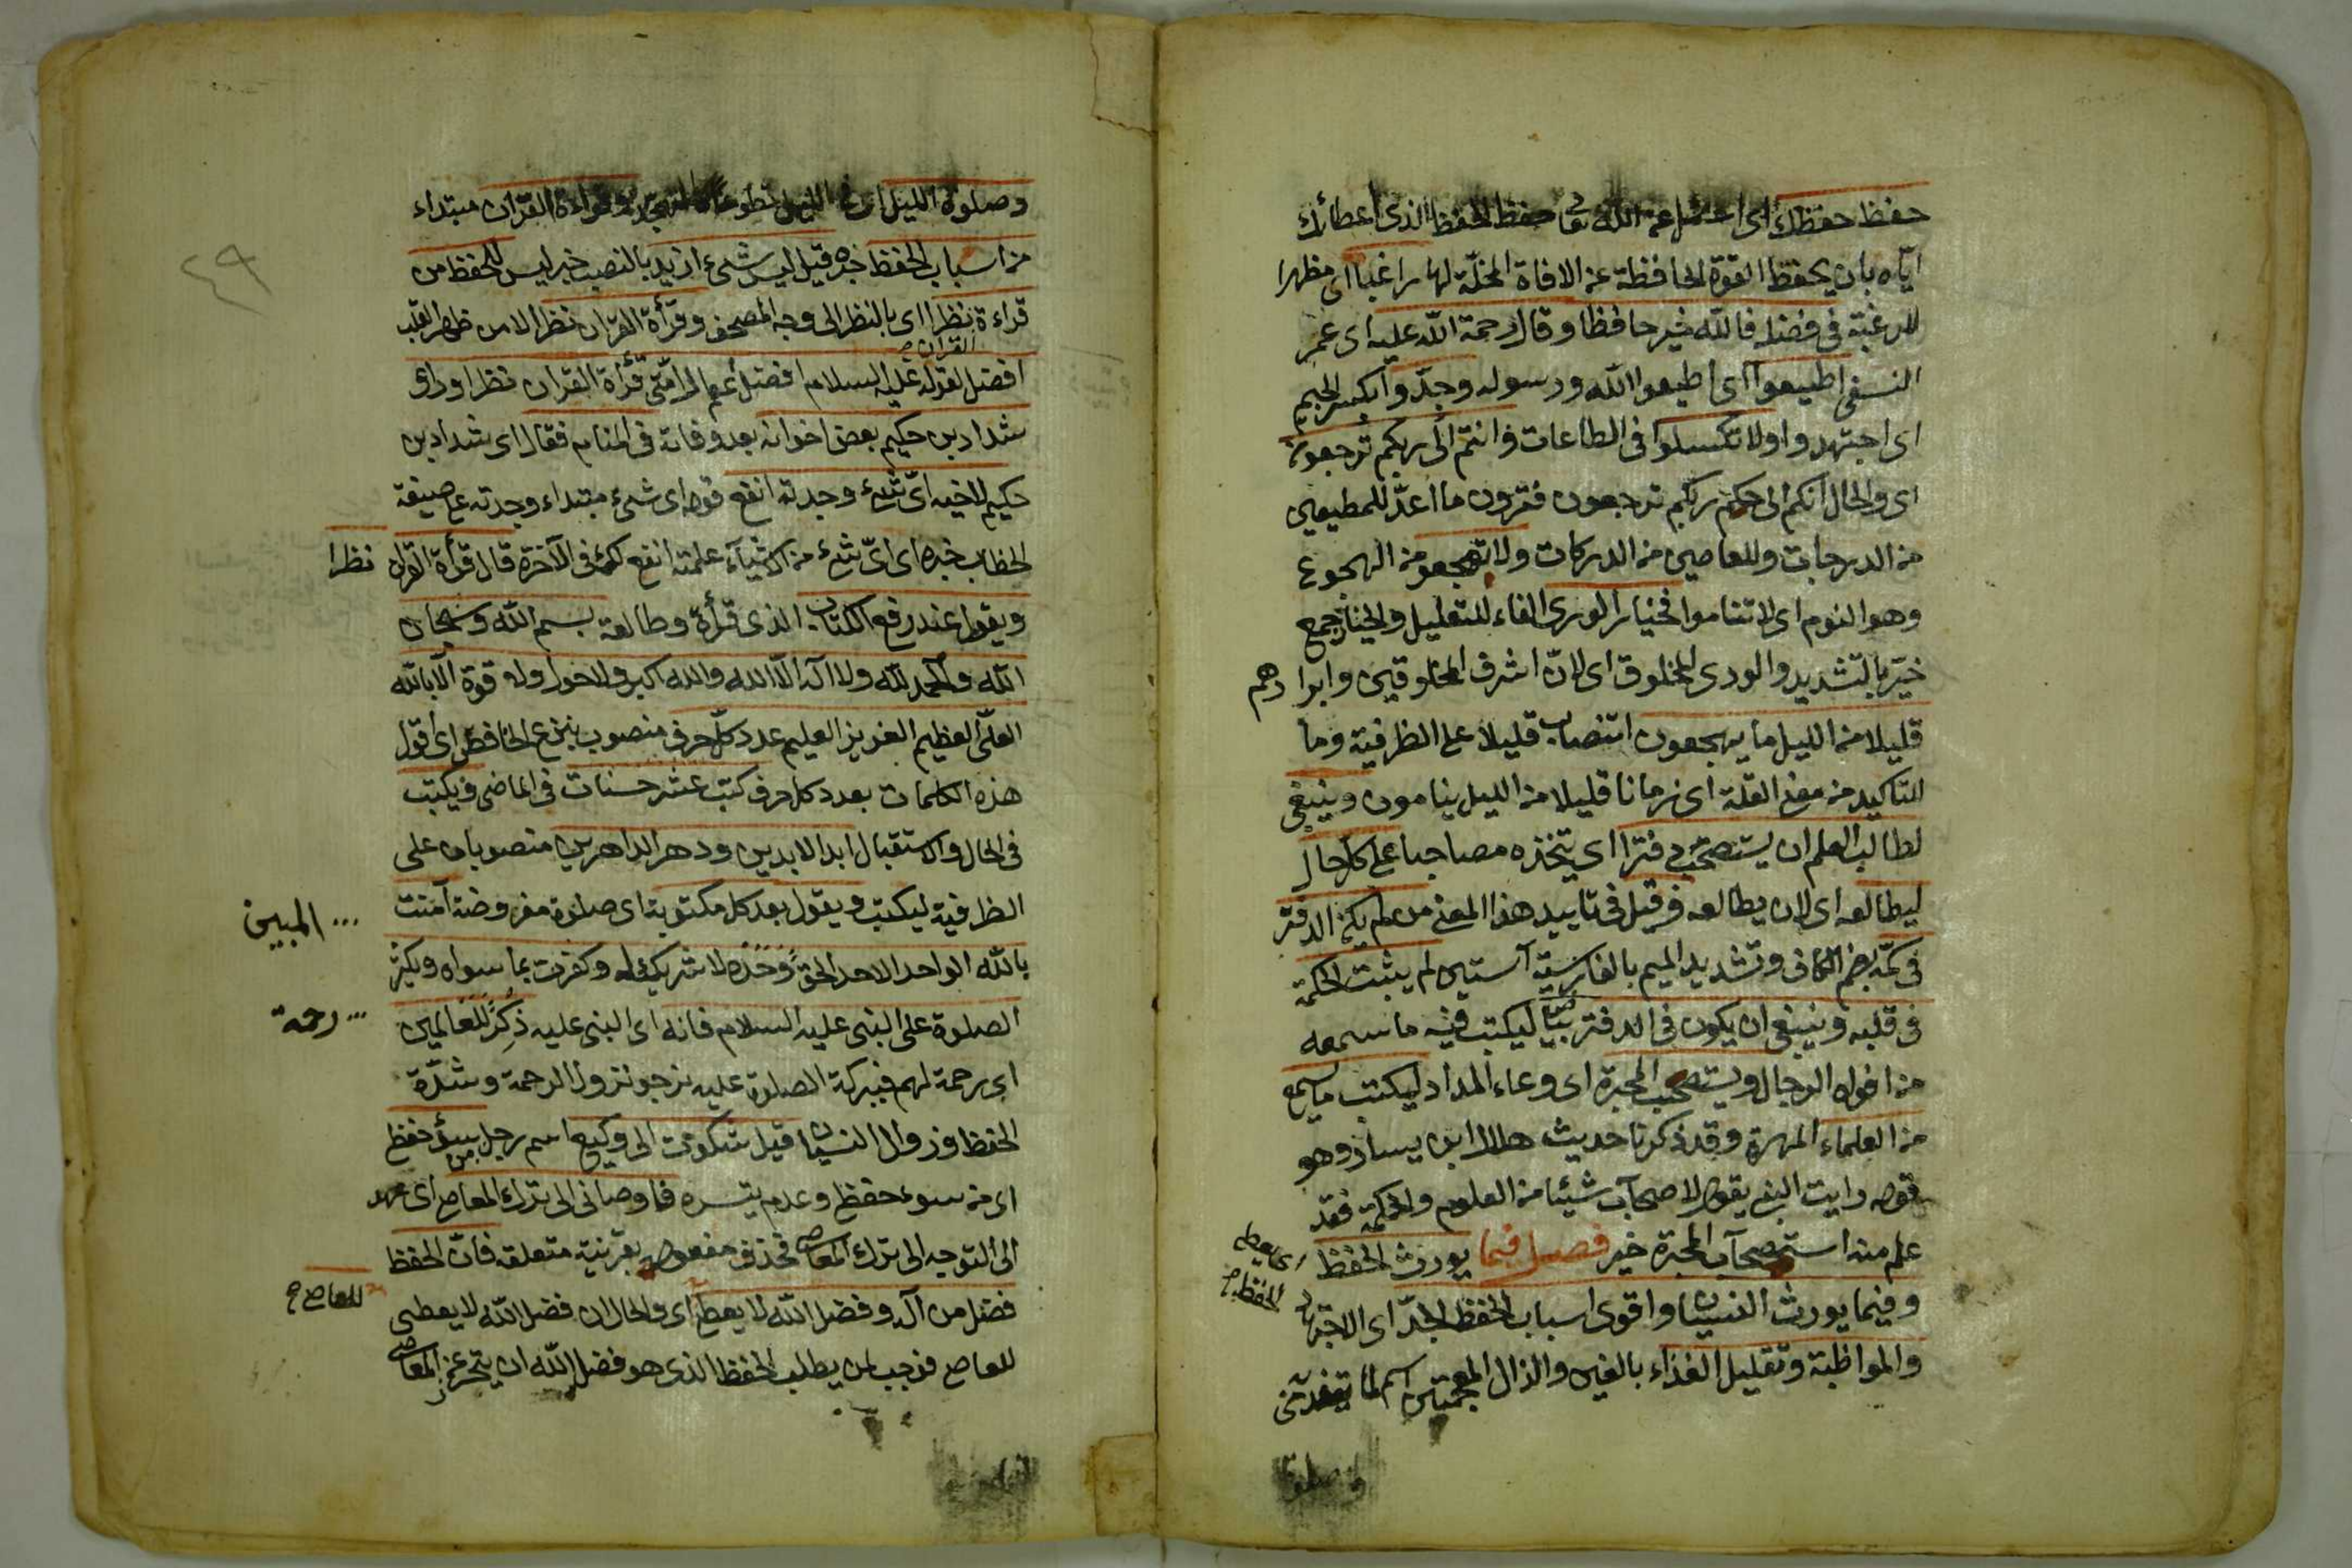 حفظ حفظك اى الله تعا حفظ الحفظ الذى اعطائك
اياه بان يحفظ القوة الحافظة عن الافاة المخلّة لها راغبا اى مظهرا
للرغبة فى فضله فالله خير حافظا وقال رحمة الله عليه اى عمر
النسفى اطيعوا اى اطيعوا الله ورسوله وجدّوا
اى اجتهدوا ولا تكسلوا فى الطاعات وانتم الى ربكم ترجعون
اى والحال انكم الى حكم ربكم ترجعون فترون ما اعدّ للمطيعين
من الدرجات وللعاصين من الدركات ولا تهجعو من الهجوع
وهو النوم اى لا تناموا فخيار الورى الفاء للتعليل والخيار جمع
خيّر بالتشديد والورى المخلوق اى لانّ اشرف المخلوقين وابرا دهم
قليلا من الليل ما يهجعون انتصاب قليلا على الظرفية وما
للتاكيد من معنى القلة اى زمانا قليلا من الليل ينامون وينبغى
لطالب العلم ان يستصحب دفترا اى يتخذه مصاحبا على كل حال
ليطالعه اى لان يطالعه وقيل فى تاييد هذا المعنى من لم يكن الدفتر
فى كمّه بضم الكاف وتشديد الميم بالفارسية آستين لم يثبت الحكمة
فى قلبه وينبغى ان يكون فى الدفتر بياض ليكتب فيه ما سمعه
من افواه الرجال ويستصحب المحبرة اى وعاء المداد ليكتب ما يسمع
من العلماء المهرة وقد ذكرنا حديث هلال ابن يسار وهو
قوله رايت النبى يقول لاصحابه شيئا من العلوم والحكمة فقد
علم منه استصحاب المحبرة خير فصل فيما يورث الحفظ
اى يعطى
الحفظ
وفيما يورث النسيان واقوى اسباب الحفظ الجدّ اى الاجتهاد
والمواظبة وتقليل الغذاء بالغين والذال المعجمتين اسم لما
وصلوة
٤٩
وصلوة الليل وقراءة القرآن مبتداء
من اسباب الحفظ خبره قيل ليس شىء ازيد بالنصب خبر ليس للحفظ من
قراءة نظرا اى بالنظر الى وجه المصحف وقرأة القرآن نظرا لا من ظهر القلب
القرآن
افضل لقوله عليه السلام افضل اعمال امّتى قرأة القران نظرا وراى
شداد بن حكيم بعض اخوانه بعد وفاته فى المنام فقال اى شداد بن
حكيم لاخيه اىّ شىء وجدته انفع قوله اى شىء مبتداء وجدته ع صيغة
الخطاب خبره اى اىّ شىء من الاشياء علمته انفع لك فى الآخرة قال قرأة القران نظرا
ويقول عند رفع الكتاب الذى قرأه وطالعه بسم الله وسبحان
الله والحمد لله ولا اله الّا الله والله اكبر ولا حول ولا قوة الّا بالله
العلىّ العظيم العزيز العليم عدد كلّ حرف منصوب بنزع الخافض اى اقول
هذه الكلمات بعدد كل حرف كتب عشر حسنات فى الماضى ويكتب
فى الحال والاستقبال ابد الابدين ودهر الداهرين منصوبان على
الظرفية ليكتب ويقول بعد كل مكتوبة اى صلوة مفروضة آمنت
... المبين
بالله الواحد الاحد الحق وحده لا شريك له وكفرت بما سواه ويكثر
الصلوة على النبى عليه السلام فانه اى النبى عليه ذكر للعالمين
... رحمة
اى رحمة لهم فببركة الصلوة عليه نرجو نزول الرحمة وشدّة
الحفظ وزوال النسيان قيل شكوت الى وكيع اسم رجل سوء حفظ
من
اى من سوء حفظى وعدم يتسره فاوصانى الى ترك المعاصى اى
الى التوجه الى ترك المعاصى فحذف مفعوله بقرينة متعلقه فانّ الحفظ
فضل من آله وفضل الله لا يعطى اى والحال ان فضل الله لا يعطى
للعاصى
للعاصى فوجب لمن يطلب الحفظ الذى هو فضل الله ان يتحرز عن المعاصى